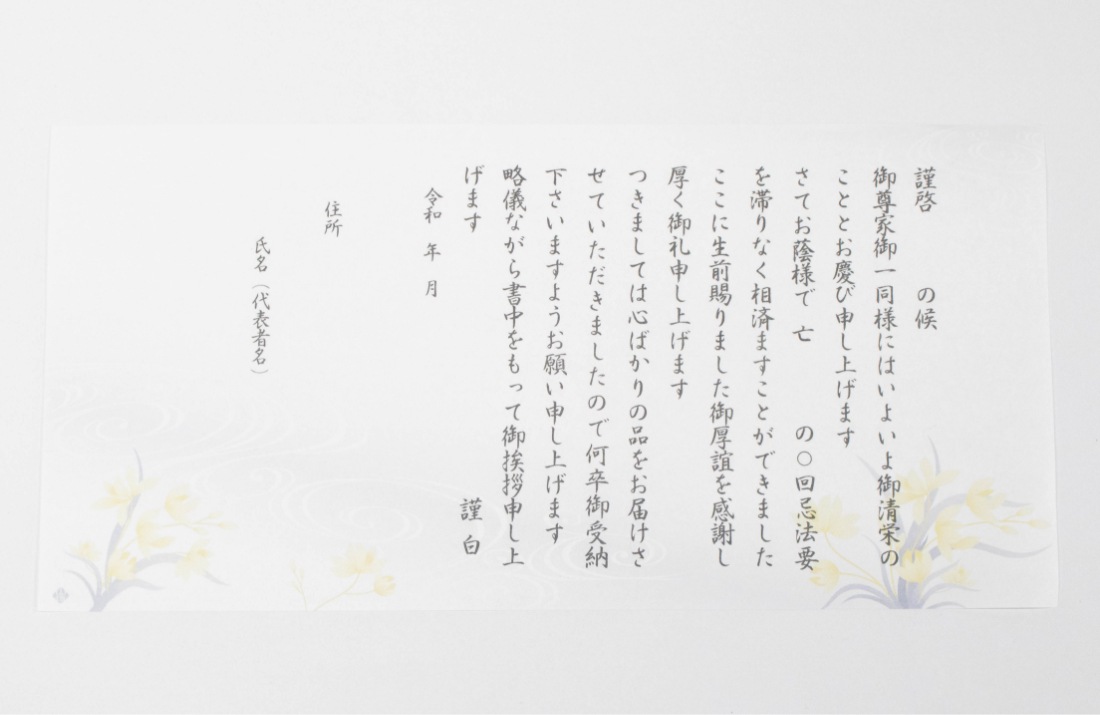 謹啓　　の候
御尊家御一同様にはいよいよ御清栄の
こととお慶び申し上げます
さてお蔭様で　亡　　　の〇回忌法要
を滞りなく相済ますことができました
ここに生前賜りました御厚誼を感謝し
厚く御礼申し上げます
つきましては心ばかりの品をお届けさ
せていただきましたので何卒御受納
下さいますようお願い申し上げます
略儀ながら書中をもって御挨拶申し上
げます　　　　　　　謹　白
令和　年　月
住所
氏名（代表者名）